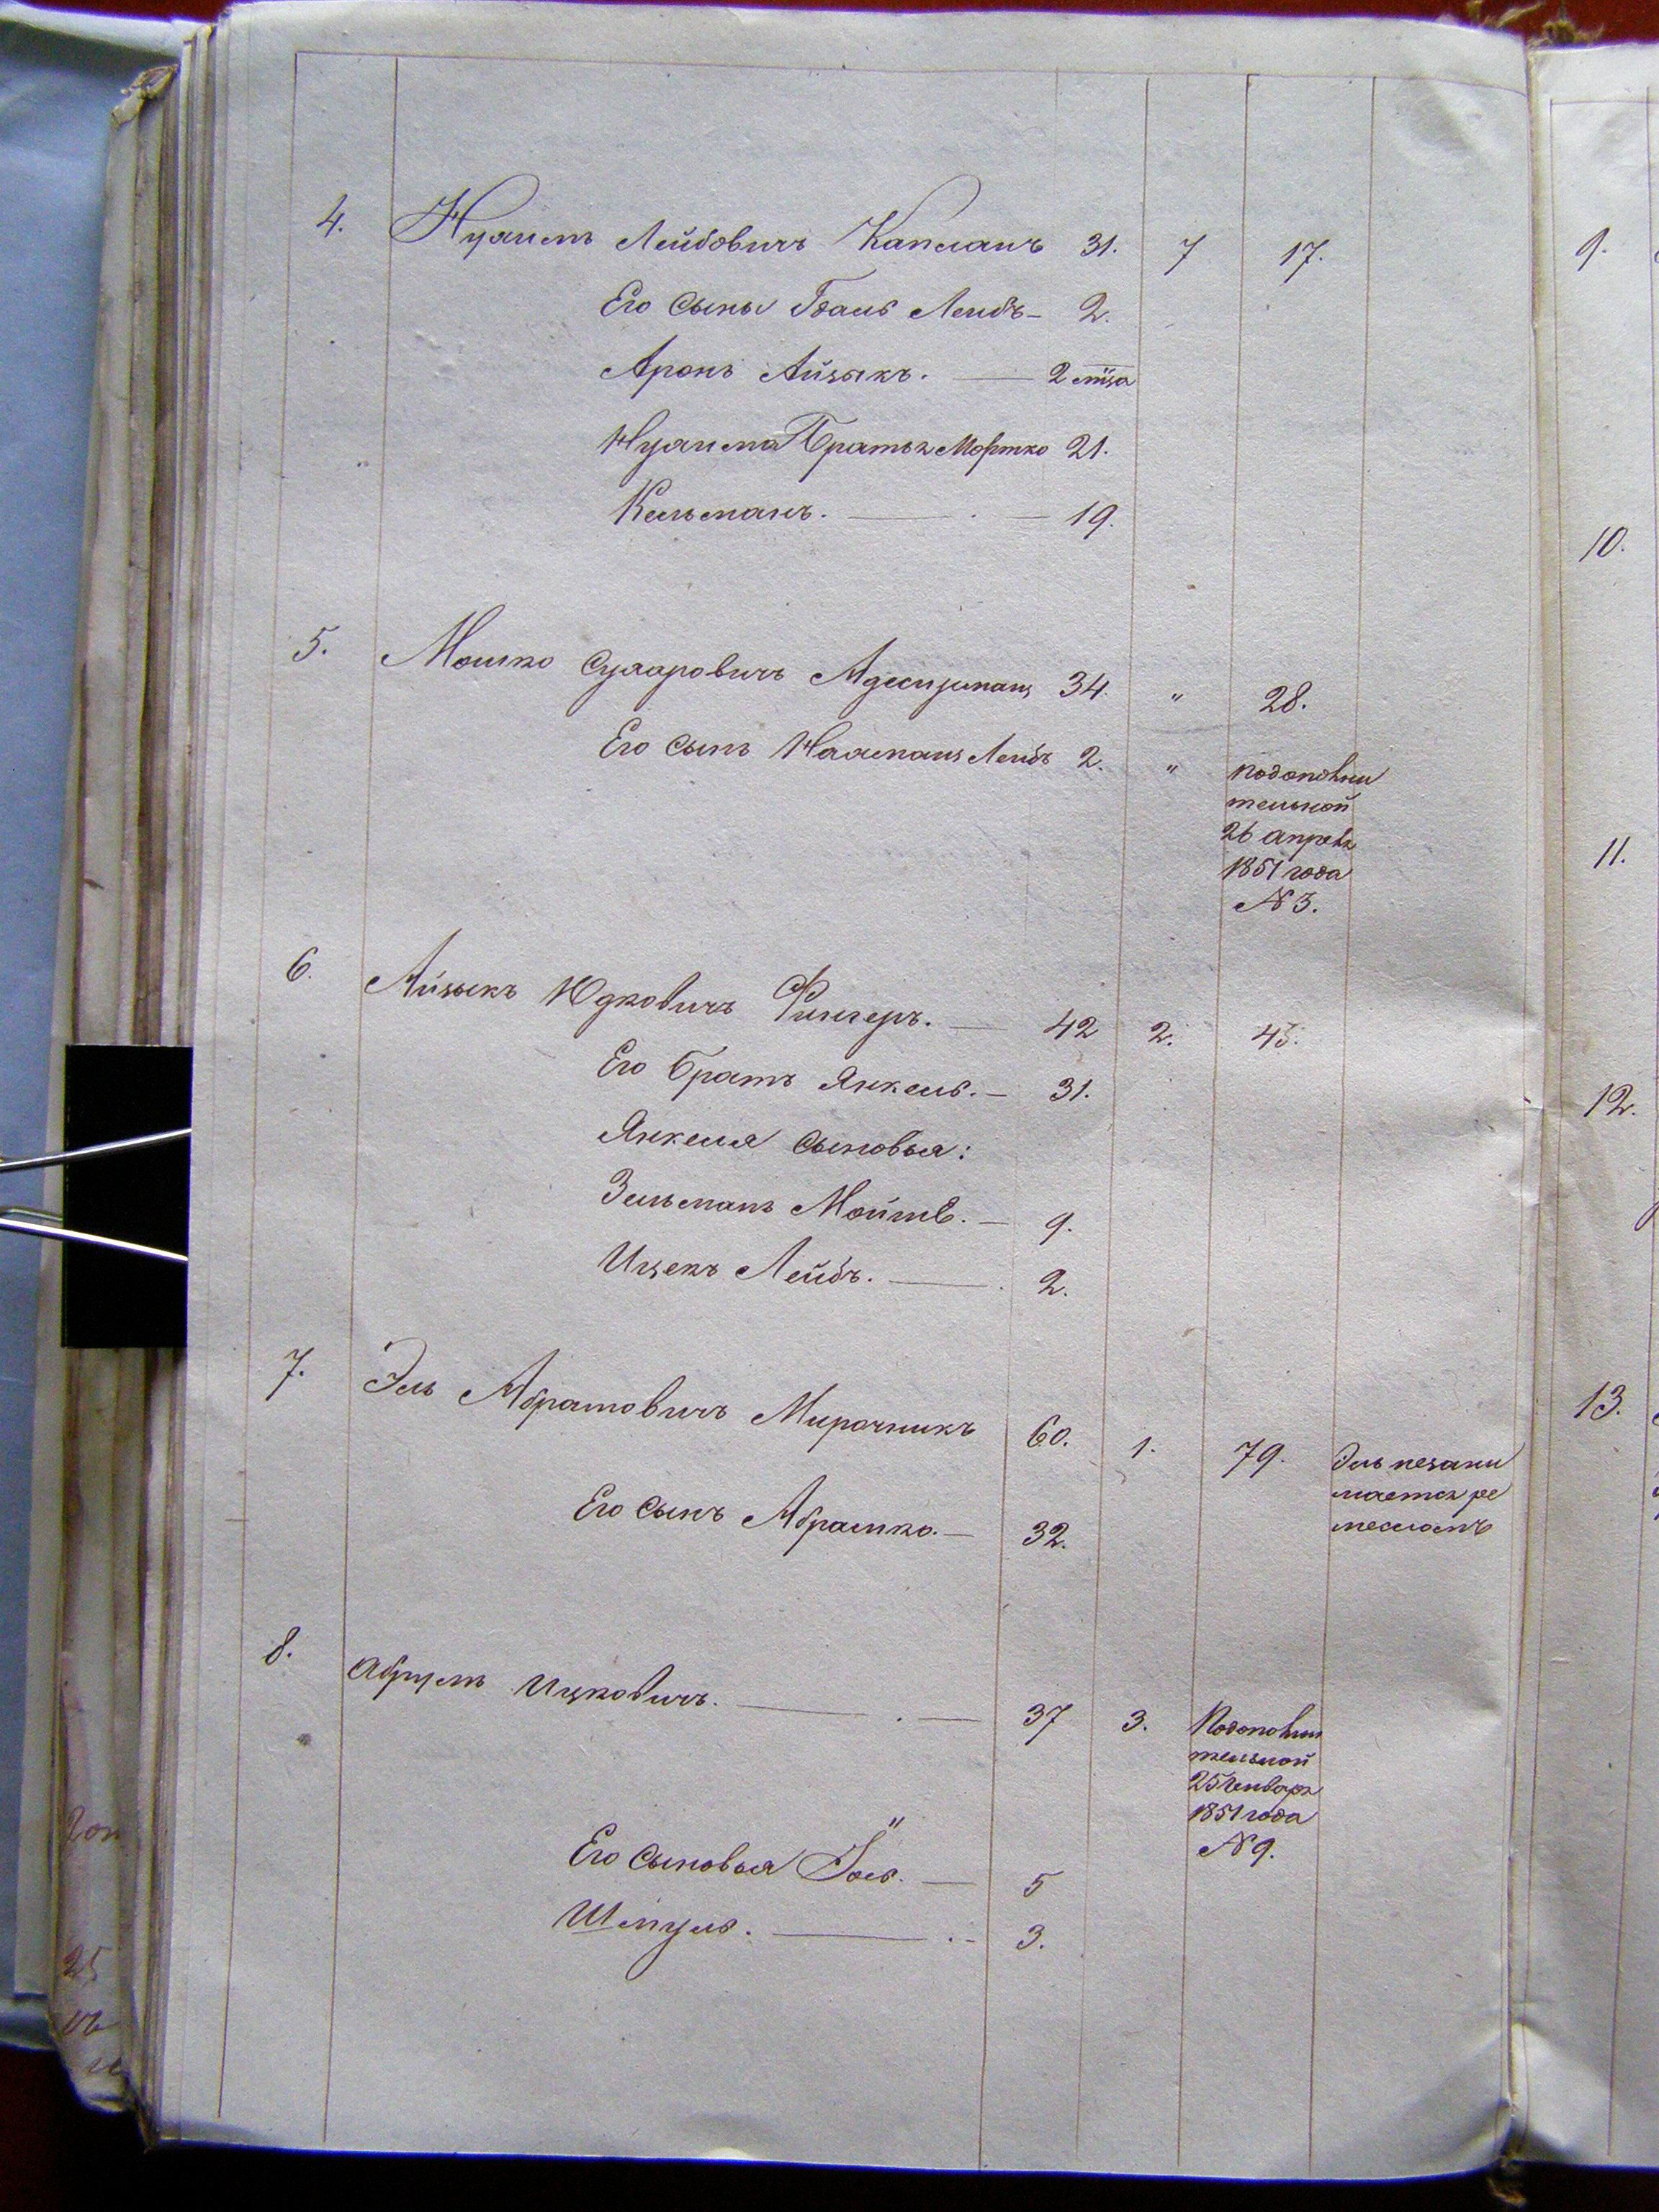 4. Нухимъ Лейбовичъ Капланъ 31. 7 17.
Его сыны Лейбъ - 2.
Аронъ Айзыкъ. — 2 м҃ца
Нухима Братья Мортко 21.
Кельманъ. — 19.
5. Мошко 34. " 28.
Его сынъ Лейбъ 2. " по дополни
тельной
26 апреля
1851 года
№ 3.
6. Айзыкъ Юдковичъ Фингеръ. — 42 2. 43.
Его братъ Янкель. — 31.
Янкеля сыновья:
Зельманъ Мойше. — 9.
Ицекъ Лейбъ. — 2.
7. Эль Абрамовичъ Мирочникъ 60. 1. 79. Эль незани
мается ре
месломъ
Его сынъ Абрамко. — 32.
8. Ицковичъ. — 37 3. По дополни
тельной
25 Генваря
1851 года
№ 9.
Его сыновья — 5
Шмуль. — 3.
9.
10.
11.
12.
13.